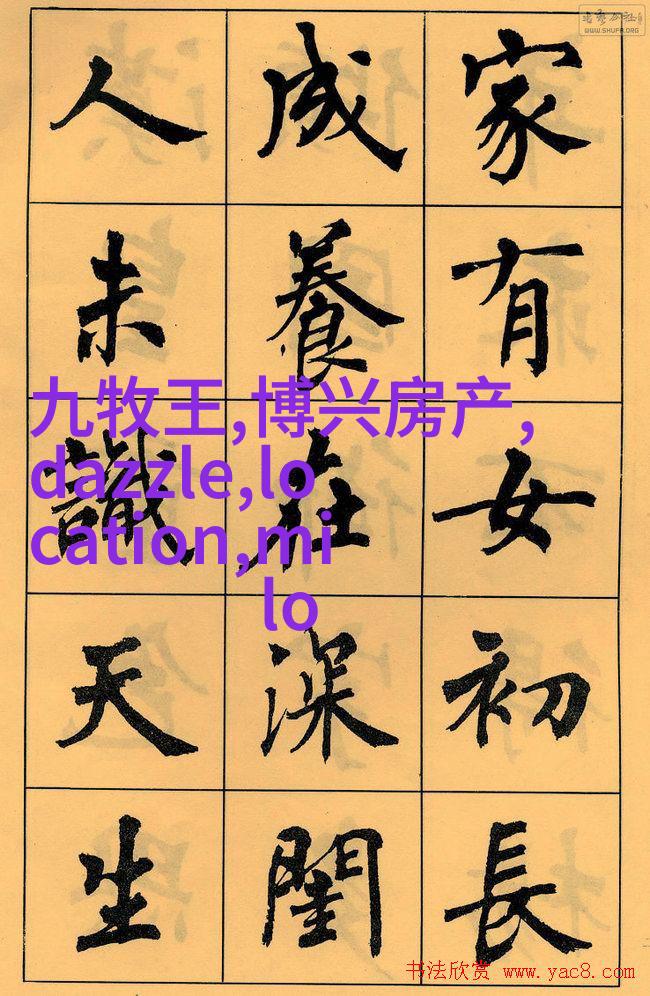 WWW.SHUFA.ORG
家有女初長
成養在深閨
人未識天生
九牧王,博兴房产,
dazzle,lo
cation,mi
lo
书法欣赏 www.yac8.com